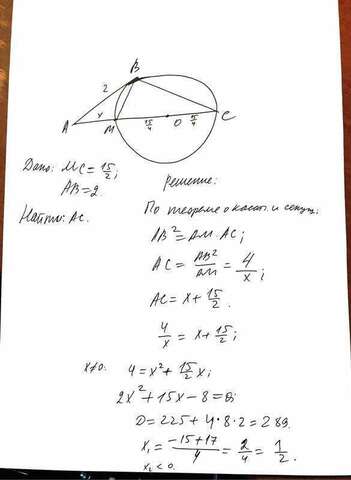 B
2
A
x
M
15/4
O
15/4
C
Дано: MC = 15/2;
AB = 2.
Найти: AC.
Решение:
По теореме о касат. и секущ.:
AB² = AM·AC;
AC = AB²/AM = 4/x;
AC = x + 15/2.
4/x = x + 15/2;
x≠0. 4 = x² + 15/2 x;
2x² + 15x - 8 = 0;
D = 225 + 4·8·2 = 289.
x₁ = (-15+17)/4 = 2/4 = 1/2.
x₂ < 0.